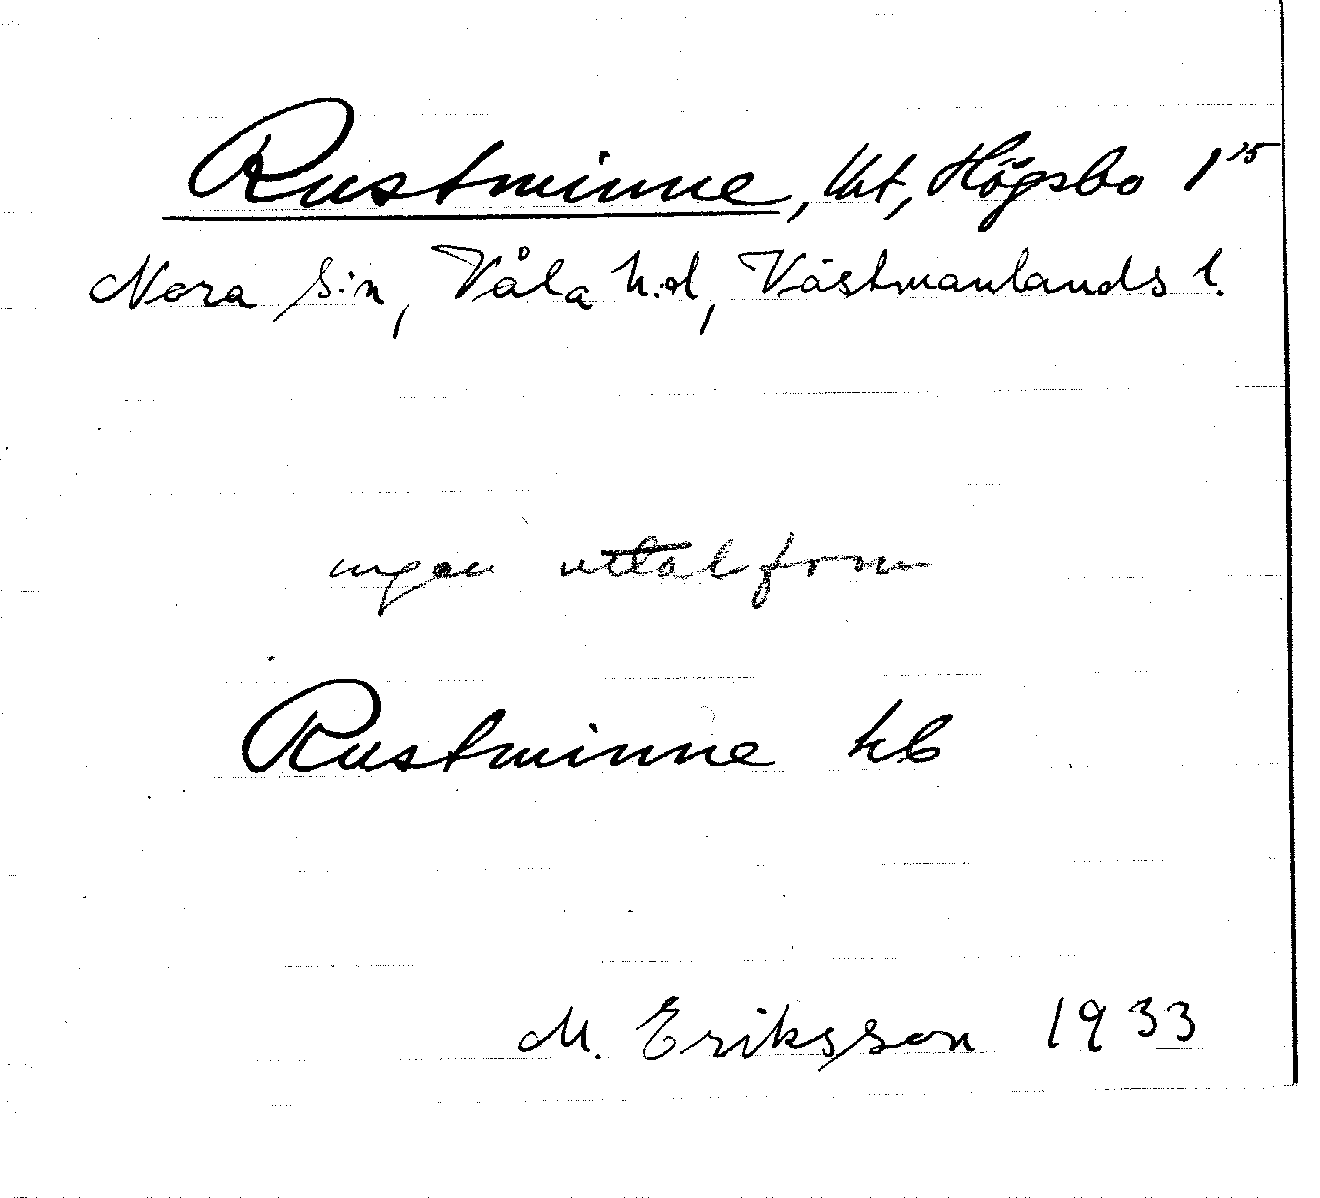 Rustminne, lht, Högsbo 1²⁵
Nora S:n, Våla h:d, Västmanlands l.
ingen uttalsform
Rustminne kb
M. Eriksson 1933